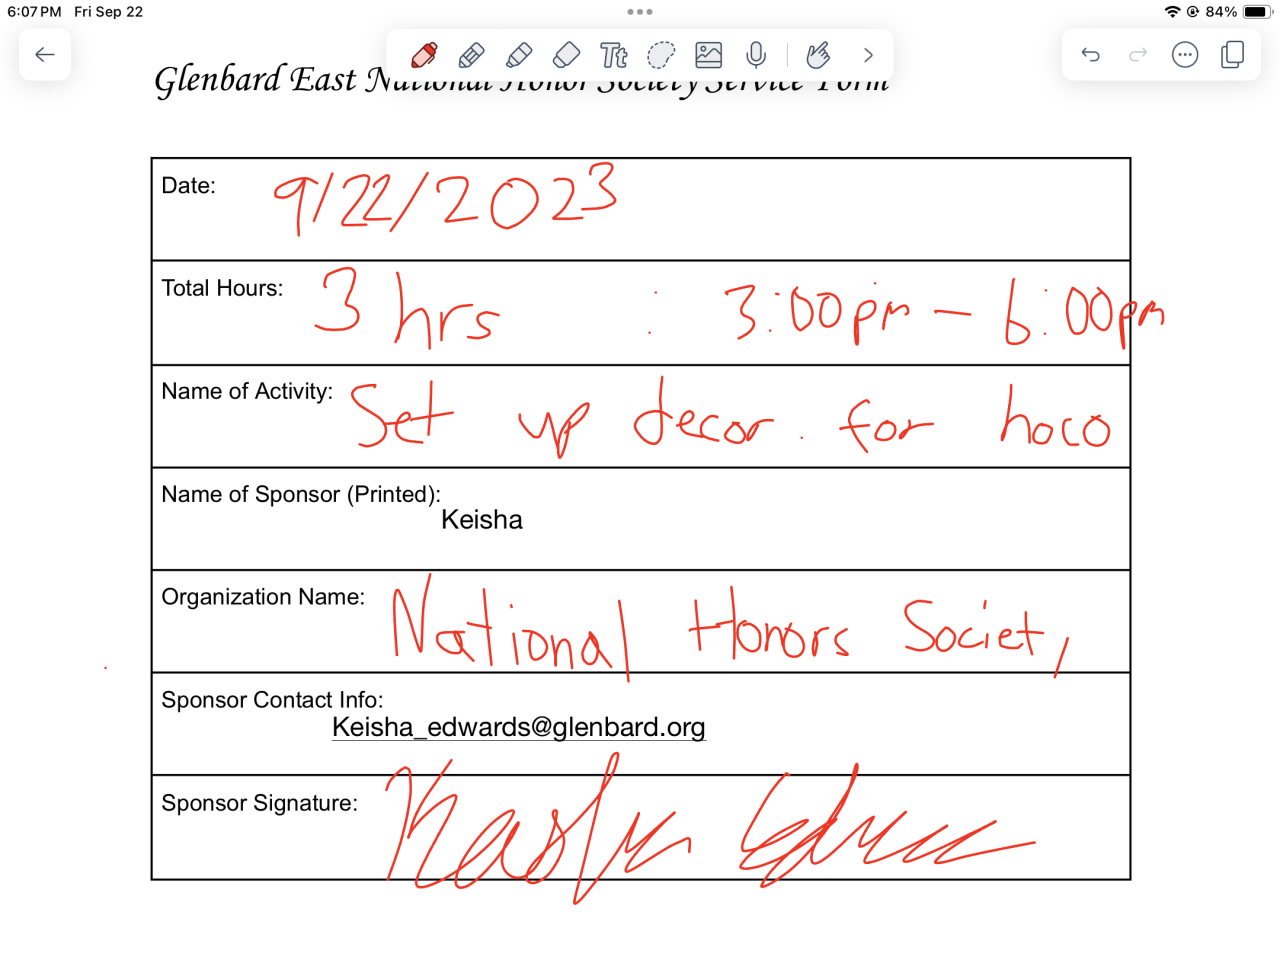 6:07 PM Fri Sep 22
84%
Tt
Glenbard East National Honor Society Service Form
Date: 9/22/2023
Total Hours: 3 hrs : 3:00pm - 6:00pm
Name of Activity: Set up decor. for hoco
Name of Sponsor (Printed):
Keisha
Organization Name: National Honors Society
Sponsor Contact Info:
Keisha_edwards@glenbard.org
Sponsor Signature: